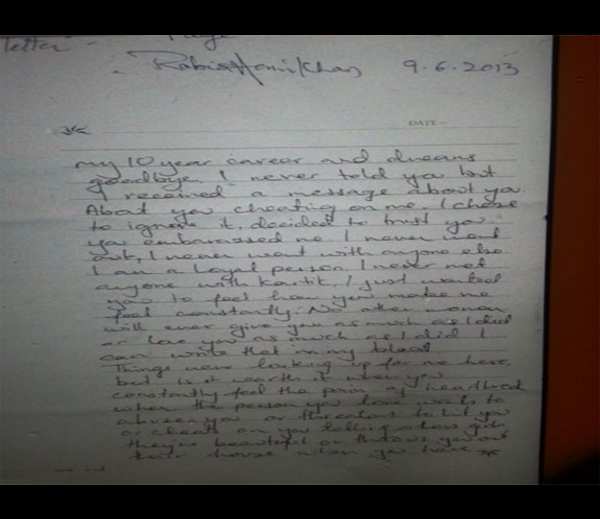 letter
Page
Rabia Amin Khan 9.6.2013
DATE
my 10 year career and dreams
goodbye. I never told you but
I received a message about you.
About you cheating on me. I chose
to ignore it, decided to trust you.
You embarassed me I never went
out, I never went with anyone else
I am a loyal person. I never met
anyone with Kartik, I just wanted
you to feel how you make me
feel constantly. No other woman
will ever give you as much as I did
or love you as much as I did I
can write that in my blood.
Things were looking up for me here,
but is it worth it when you
constantly feel the pain of heartbreak
when the person you love wants to
abuse you or threatens to hit you
or cheats on you telling other girls
they're beautiful or throws you out
their house when you have